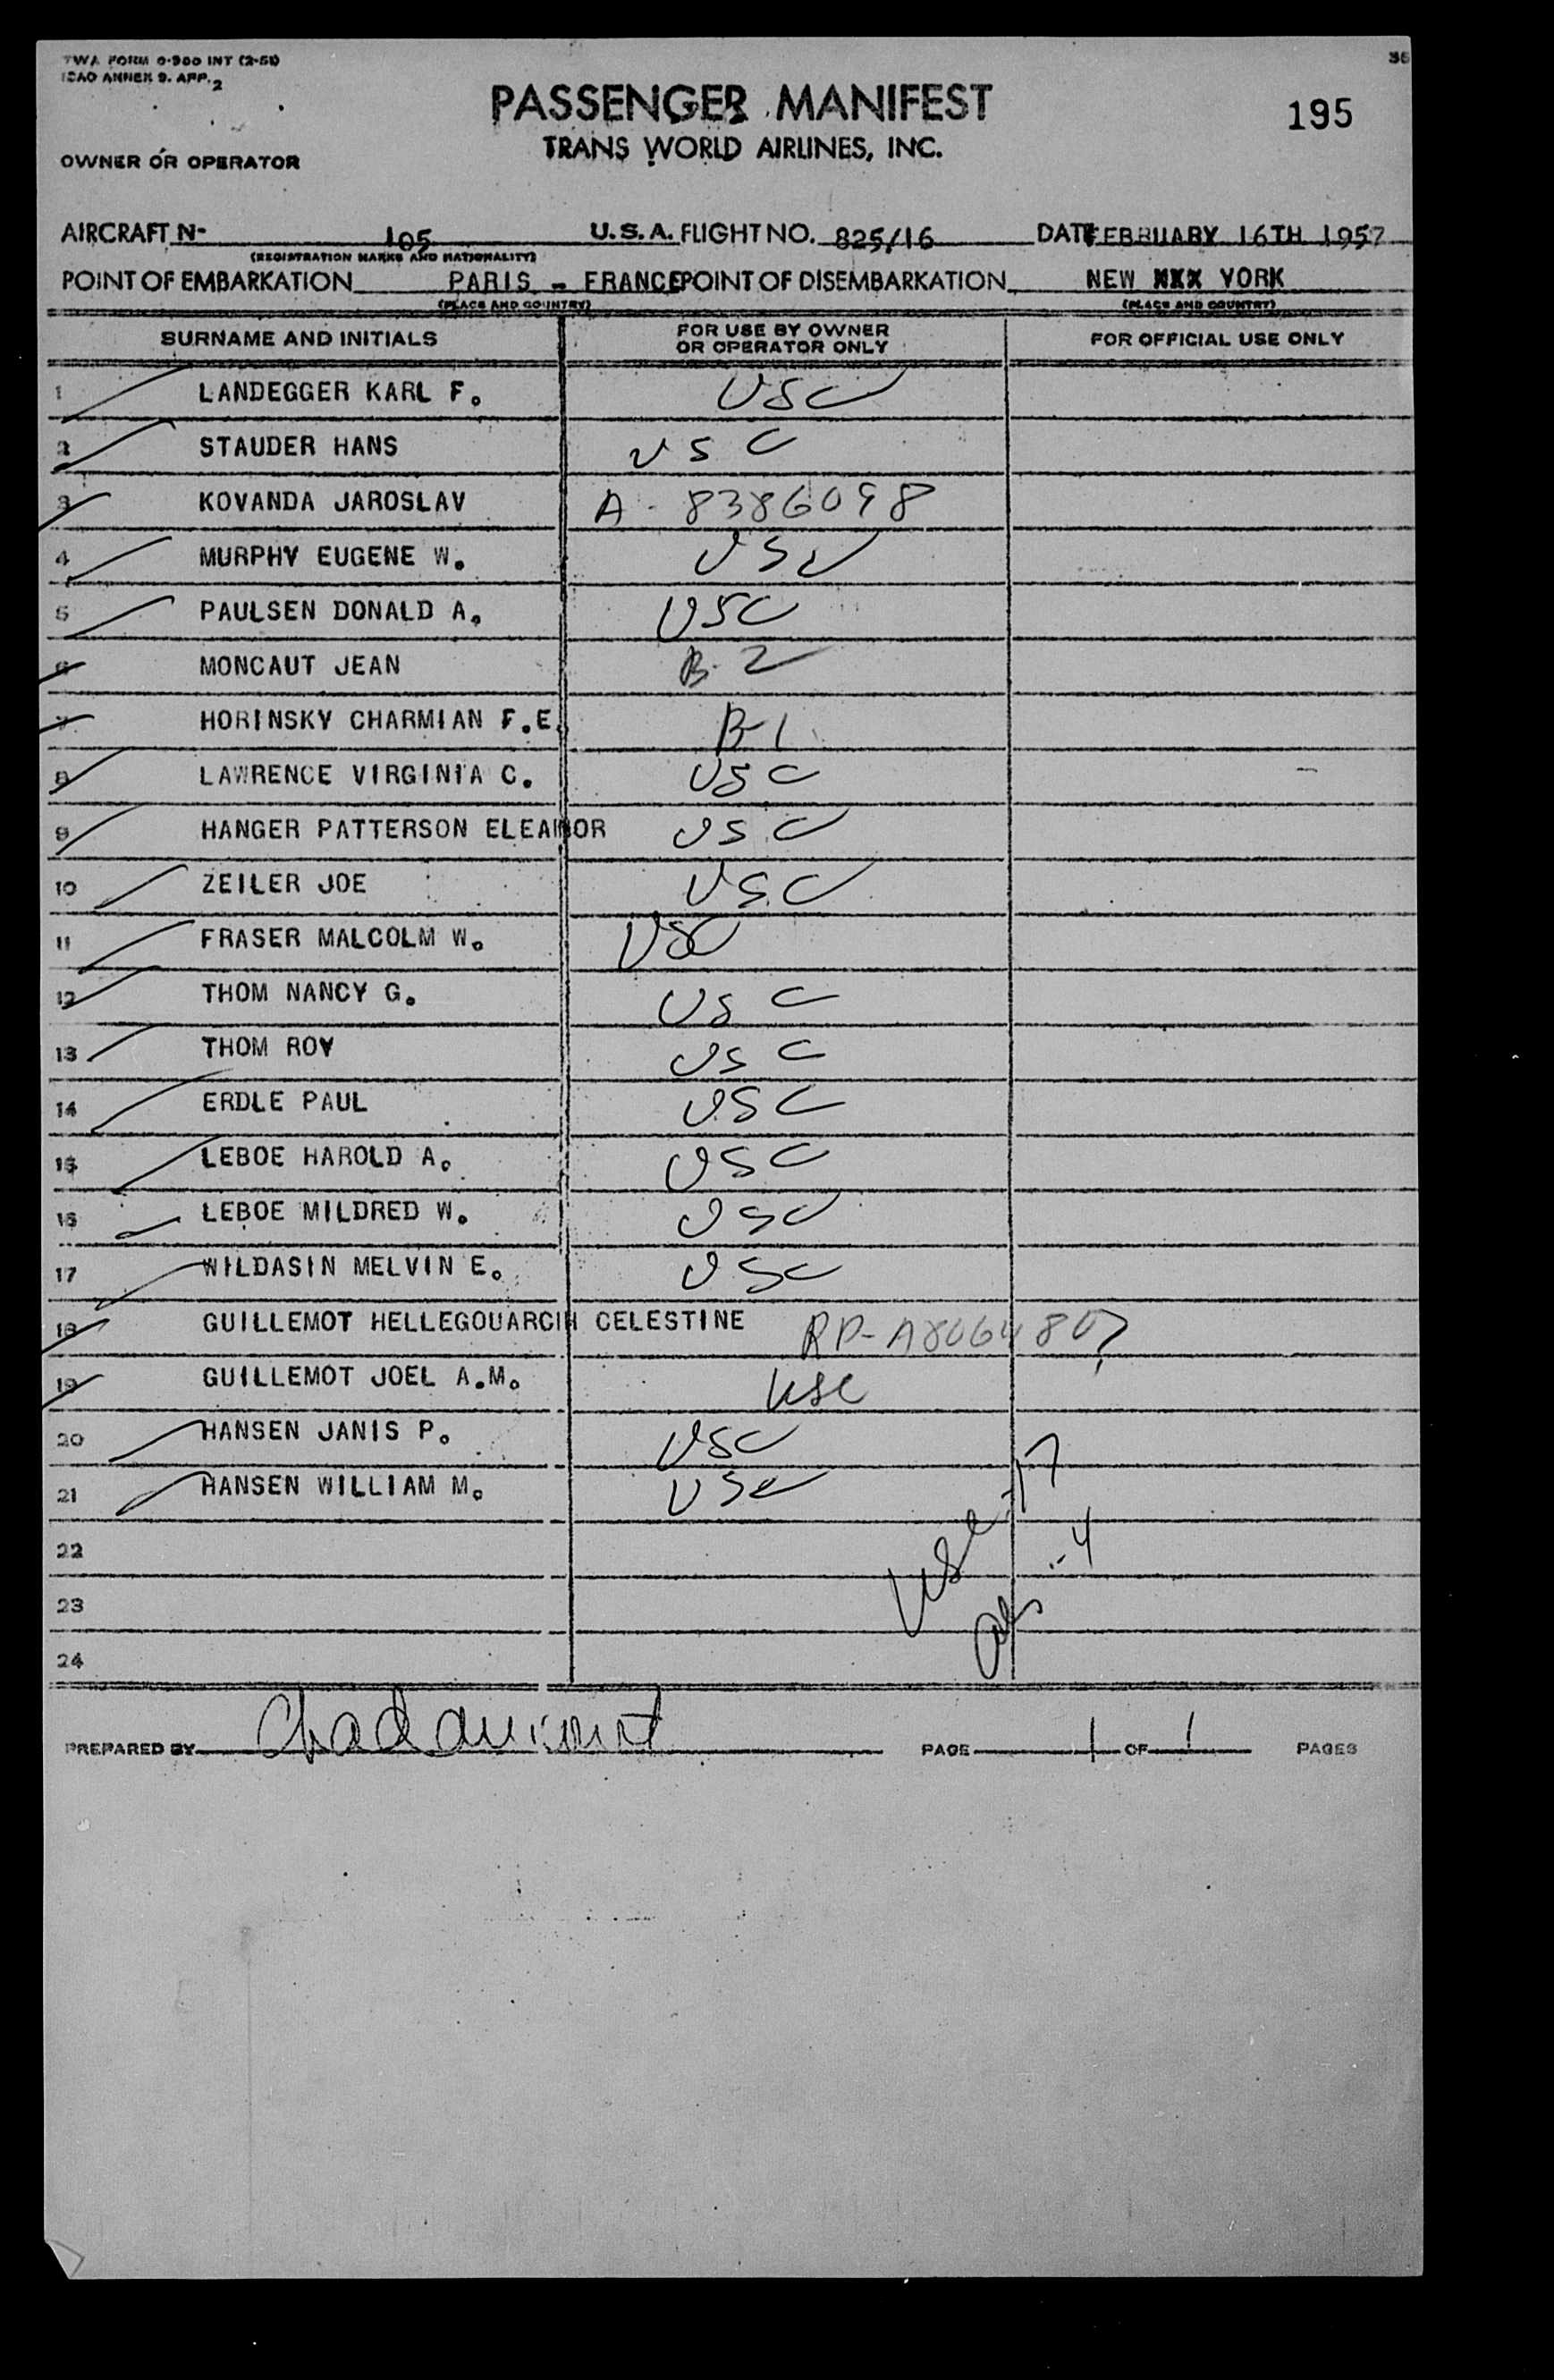 TWA FORM 0-900 INT (2-51)
ICAO ANNEX 9. APP. 2
36
PASSENGER MANIFEST
195
TRANS WORLD AIRLINES, INC.
OWNER OR OPERATOR
AIRCRAFT N- 105 U.S.A. FLIGHT NO. 825/16 DATE FEBRUARY 16TH 1957
(REGISTRATION MARKS AND NATIONALITY)
POINT OF EMBARKATION PARIS - FRANCE POINT OF DISEMBARKATION NEW XXX YORK
(PLACE AND COUNTRY) (PLACE AND COUNTRY)
SURNAME AND INITIALS FOR USE BY OWNER OR OPERATOR ONLY FOR OFFICIAL USE ONLY
1 LANDEGGER KARL F. USC
2 STAUDER HANS USC
3 KOVANDA JAROSLAV A-8386098
4 MURPHY EUGENE W. USC
5 PAULSEN DONALD A. USC
6 MONCAUT JEAN B-2
7 HORINSKY CHARMIAN F.E. B-1
8 LAWRENCE VIRGINIA C. USC
9 HANGER PATTERSON ELEANOR USC
10 ZEILER JOE USC
11 FRASER MALCOLM W. USC
12 THOM NANCY G. USC
13 THOM ROY USC
14 ERDLE PAUL USC
15 LEBOE HAROLD A. USC
16 LEBOE MILDRED W. USC
17 WILDASIN MELVIN E. USC
18 GUILLEMOT HELLEGOUARCIH CELESTINE RP-
19 GUILLEMOT JOEL A.M. USC
20 HANSEN JANIS P. USC
21 HANSEN WILLIAM M. USC
USC-17
22
-4
23
24
PREPARED BY PAGE 1 OF 1 PAGES